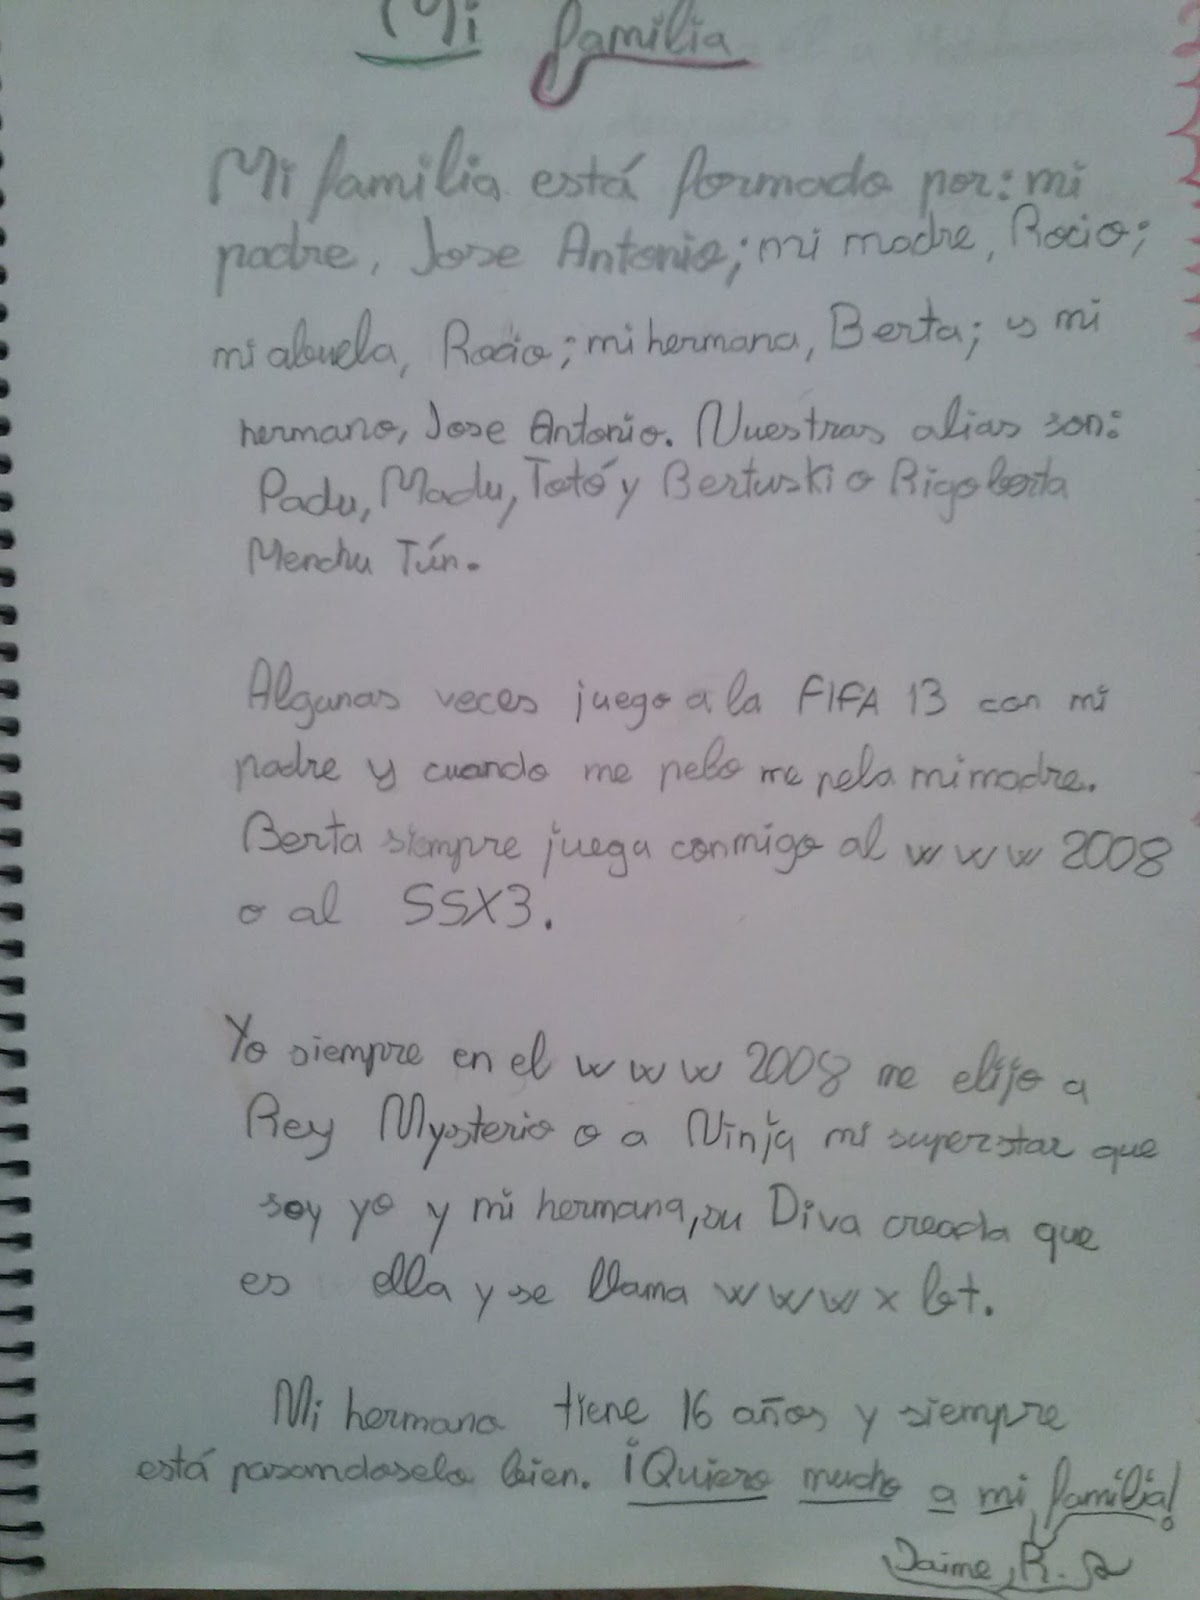 Mi familia
Mi familia está formado por: mi
padre, Jose Antonio; mi madre, Rocio;
mi abuela, Rocio; mi hermana, Berta; y mi
hermano, Jose Antonio. Nuestras alias son:
Padu, Madu, Totó y Bertuski o Rigoberta
Menchu Tún.
Algunas veces juego a la FIFA 13 con mi
padre y cuando me pelo me pela mi madre.
Berta siempre juega conmigo al www 2008
o al SSX3.
Yo siempre en el www 2008 me elijo a
Rey Mysterio o a Ninja mi superstar que
soy yo y mi hermana, su Diva creada que
es ella y se llama www x
Mi hermana tiene 16 años y siempre
está pasandoselo bien. ¡Quiero mucho a mi familia!
Jaime, R.